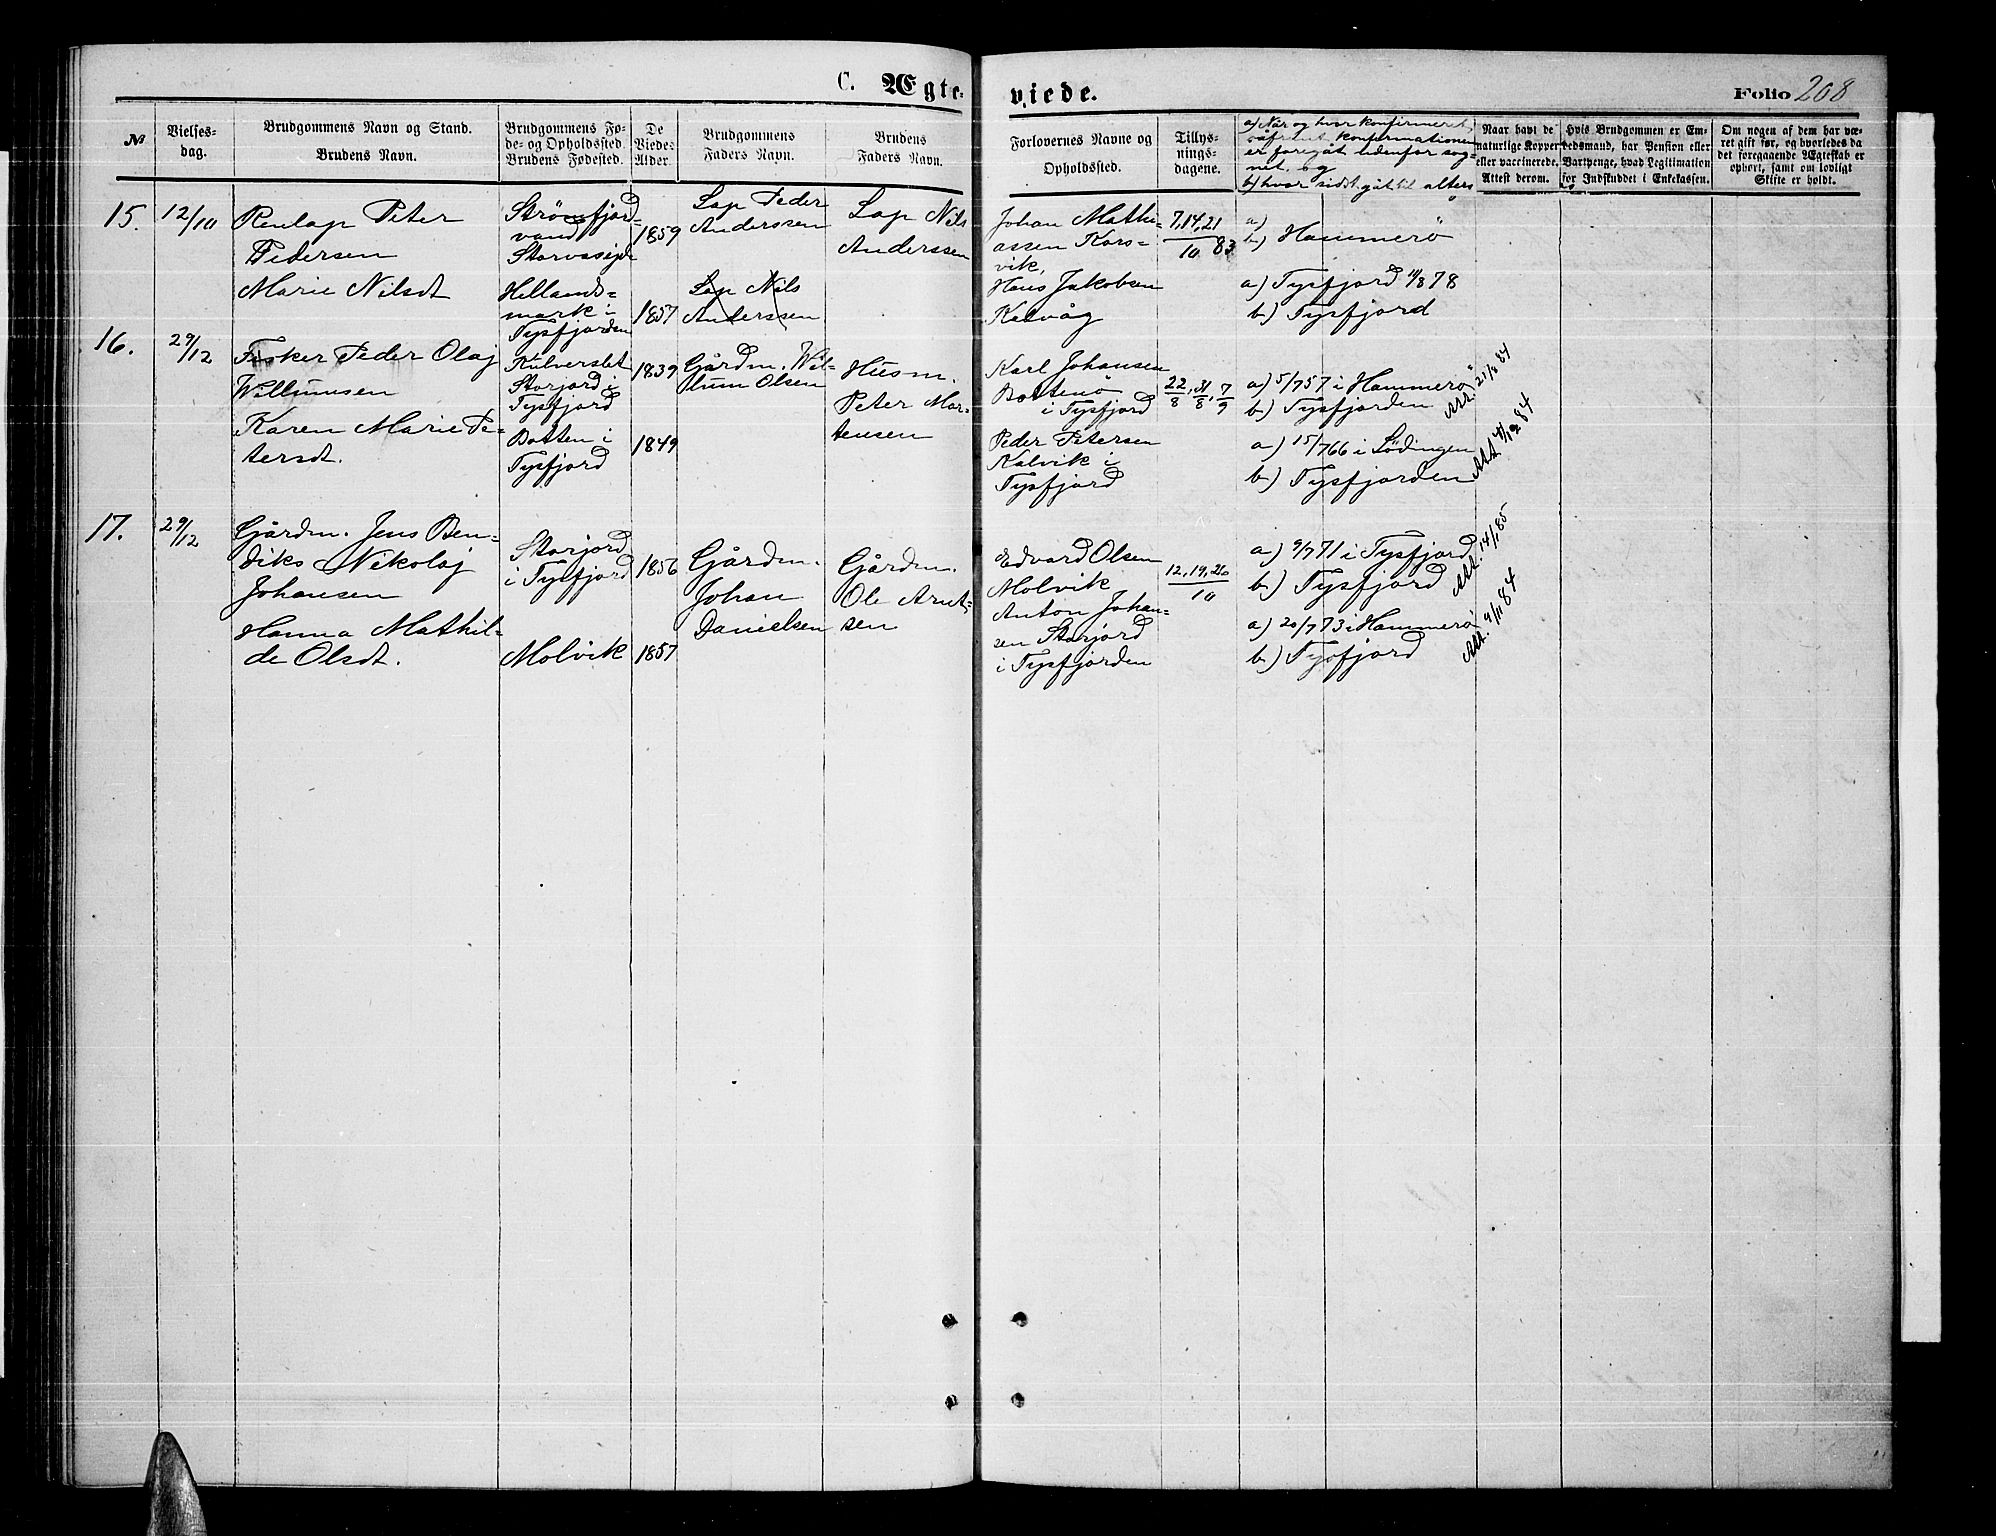 C. Ægte-
viede.
Folio 208
№
Vielses-
dag.
Brudgommens Navn og Stand.
Brudens Navn.
Brudgommens Fø-
de- og Opholdssted.
Brudens Fødested.
De
Viedes
Alder.
Brudgommens
Faders Navn.
Brudens
Faders Navn.
Forlovernes Navne og
Opholdssted.
Tillys-
nings-
dagene.
a) Når og hvor konfirmeret,
såfremt konfirmationen
er foregåt udenfor sog-
net, og
b) hvor sidst gåt til alters
Naar havt de
naturlige Kopper
eller vaccinerede.
Attest derom.
Hvis Brudgommen er Em-
bedsmand, har Pension eller
Vartpenge, hvad Legitimation
for Indskuddet i Enkekassen.
Om nogen af dem har væ-
ret gift før, og hvorledes da
det foregaaende Ægteskab er
ophørt, samt om lovligt
Skifte er holdt.
15.
12/10
Renlap Peter
Pedersen
Marie Nilsdt
Strömfjord-
vand
Hellands-
mark i
Tysfjorden
1859
1857
Lap Peder
Anderssen
Lap Nils
Anderssen
Lap Nils
Anderssen
Johan Mathi-
assen Kors-
vik,
Hans Jakobsen
Kalvåg
7,14,21
10 83
a)
b) Hammerö
a) Tysfjord 11/8 78
b) Tysfjord
16.
29/12
Fisker Peder Olaj
Willumsen
Karen Marie Pe-
tersdt.
Kulverslet
Storjord i
Tysfjord
Botten i
Tysfjord
1839
1849
Gårdm. Wil-
lum Olsen
Husm.
Peter Mor-
tensen
Karl Johansen
Bottenö
i Tysfjord
Peder Petersen
Kalvik i
Tysfjord
22/8, 31/8, 7/9
a) 5/7 57 i Hammerö
b) Tysfjorden
a) 15/7 66 i Lödingen
b) Tysfjorden
Att. 21/8 84
Att. 4/12 84
17.
29/12
Gårdm. Jens Ben-
diks Nikolaj
Johansen
Hanna Mathil-
de Olsdt.
Storjord
i Tysfjord
Molvik
1856
1857
Gårdm.
Johan
Danielsen
Gårdm.
Ole Arnt-
sen
Edvard Olsen
Molvik
Anton Johan-
sen Storjord
i Tysfjorden
12,19,26
10
a) 9/7 71 i Tysfjord
b) Tysfjord
a) 20/7 73 i Hammerö
b) Tysfjord
Att. 14/1 85
Att. 9/11 84